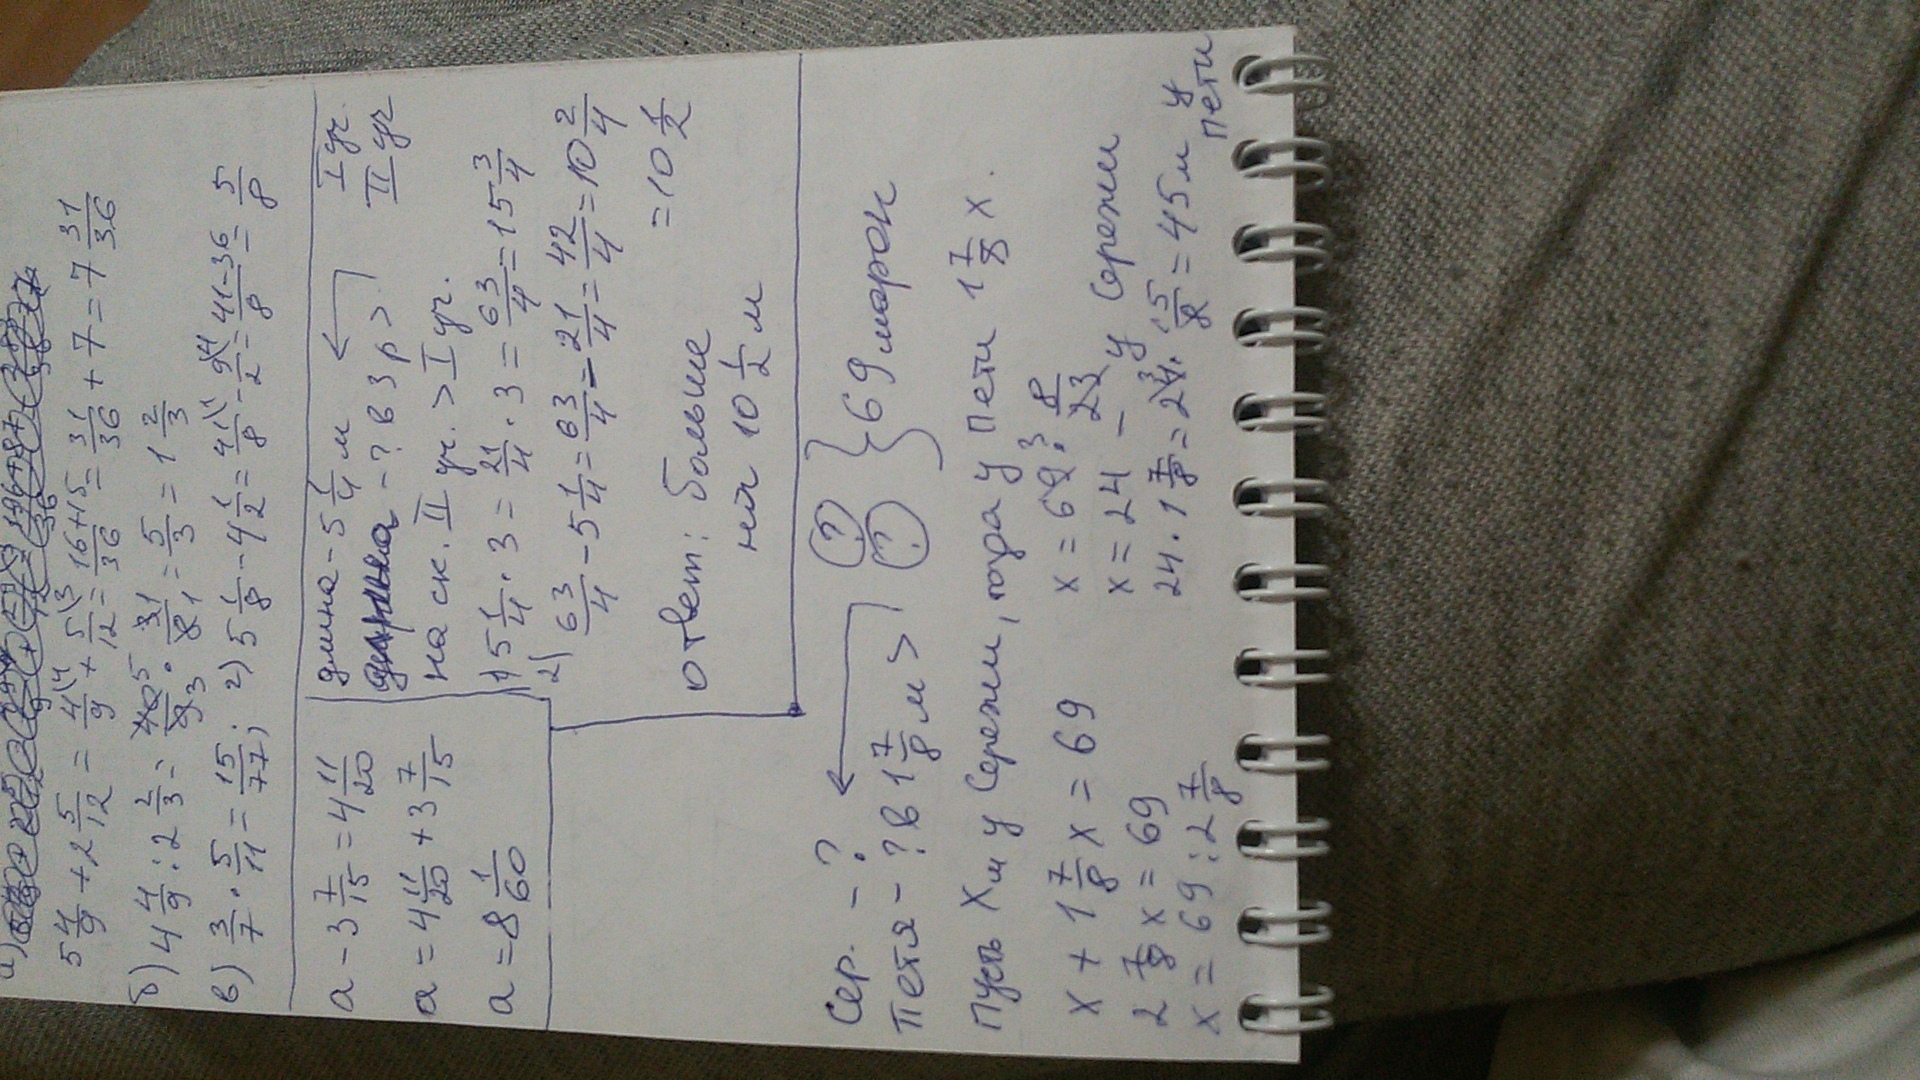 а)
5 4/9 + 2 5/12 = 4\4/9 + 5\3/12 = 16+15/36 = 31/36 + 7 = 7 31/36
б) 4 4/9 : 2 2/3 = 40 5/9 3 · 31/81 = 5/3 = 1 2/3
в) 3/7 · 5/11 = 15/77; 2) 5 1/8 - 4 1/2 = 41\1/8 - 9\4/2 = 41-36/8 = 5/8
a - 3 7/15 = 4 11/20
a = 4 11/20 + 3 7/15
a = 8 1/60
длина - 5 1/4 м I уч.
ширина - ? в 3 р > II уч
на ск. II уч. > I уч.
1) 5 1/4 · 3 = 21/4 · 3 = 63/4 = 15 3/4
2) 63/4 - 5 1/4 = 63/4 - 21/4 = 42/4 = 10 2/4
= 10 1/2
ответ: больше
на 10 1/2 м
Сер. - ? (?) } 69 марок
Петя - ? в 1 7/8 м > (?)
Пусть X м у Сережи, тогда у Пети 1 7/8 x.
x + 1 7/8 x = 69
2 7/8 x = 69
x = 69 : 2 7/8
x = 69 3 · 8/23
x = 24 - у Сережи
24 · 1 7/8 = 24 3 · 15/8 = 45 м у
Пети